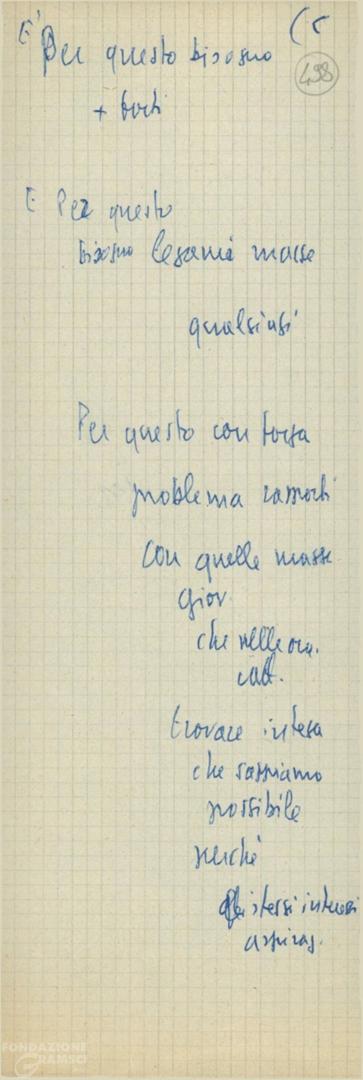 (5
E' Per questo bisogno
438
+ forti
E Per questo
bisogno legami masse
qualsiasi
Per questo con forza
problema rapporti
con quelle masse
giov.
che nelle org.
catt.
trovare intesa
che sappiamo
possibile
perché
stessi interessi
aspiraz.
FONDAZIONE
GRAMSCI